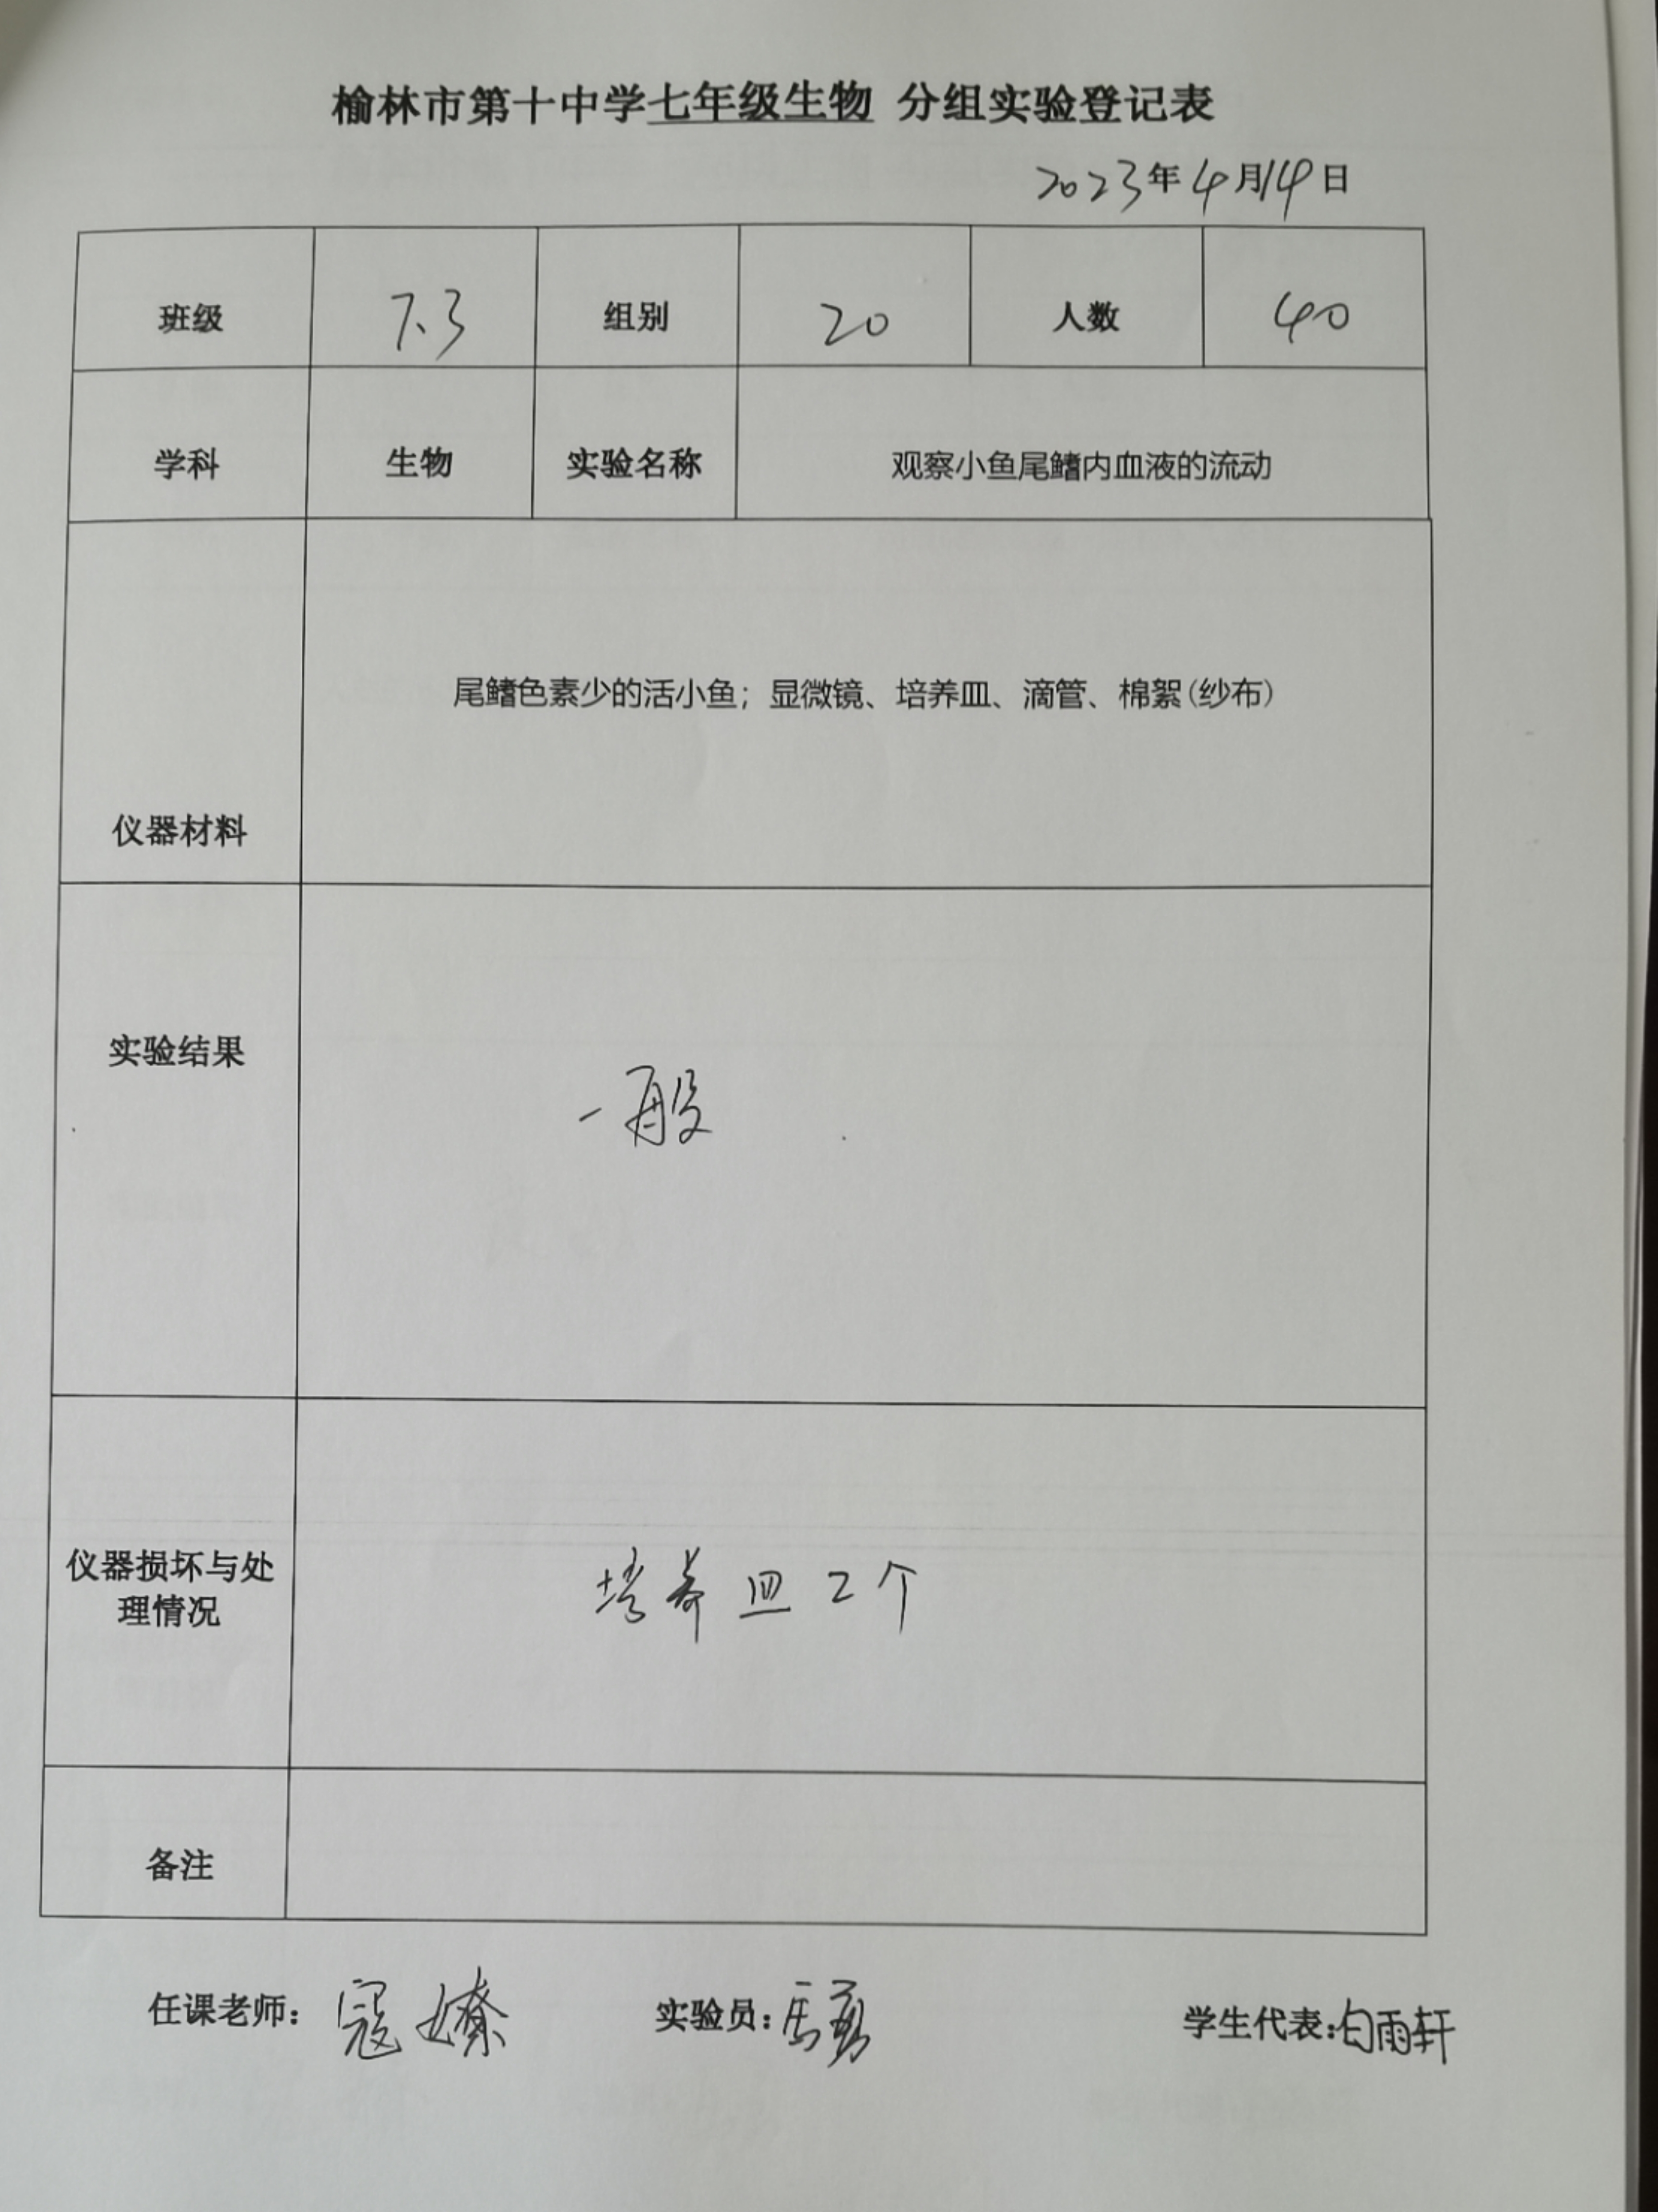 榆林市第十中学七年级生物 分组实验登记表
2023年4月14日
班级 7.3 组别 20 人数 40
学科 生物 实验名称 观察小鱼尾鳍内血液的流动
尾鳍色素少的活小鱼；显微镜、培养皿、滴管、棉絮(纱布)
仪器材料
实验结果
一般
仪器损坏与处
理情况
培养皿2个
备注
任课老师： 实验员： 学生代表：白雨轩